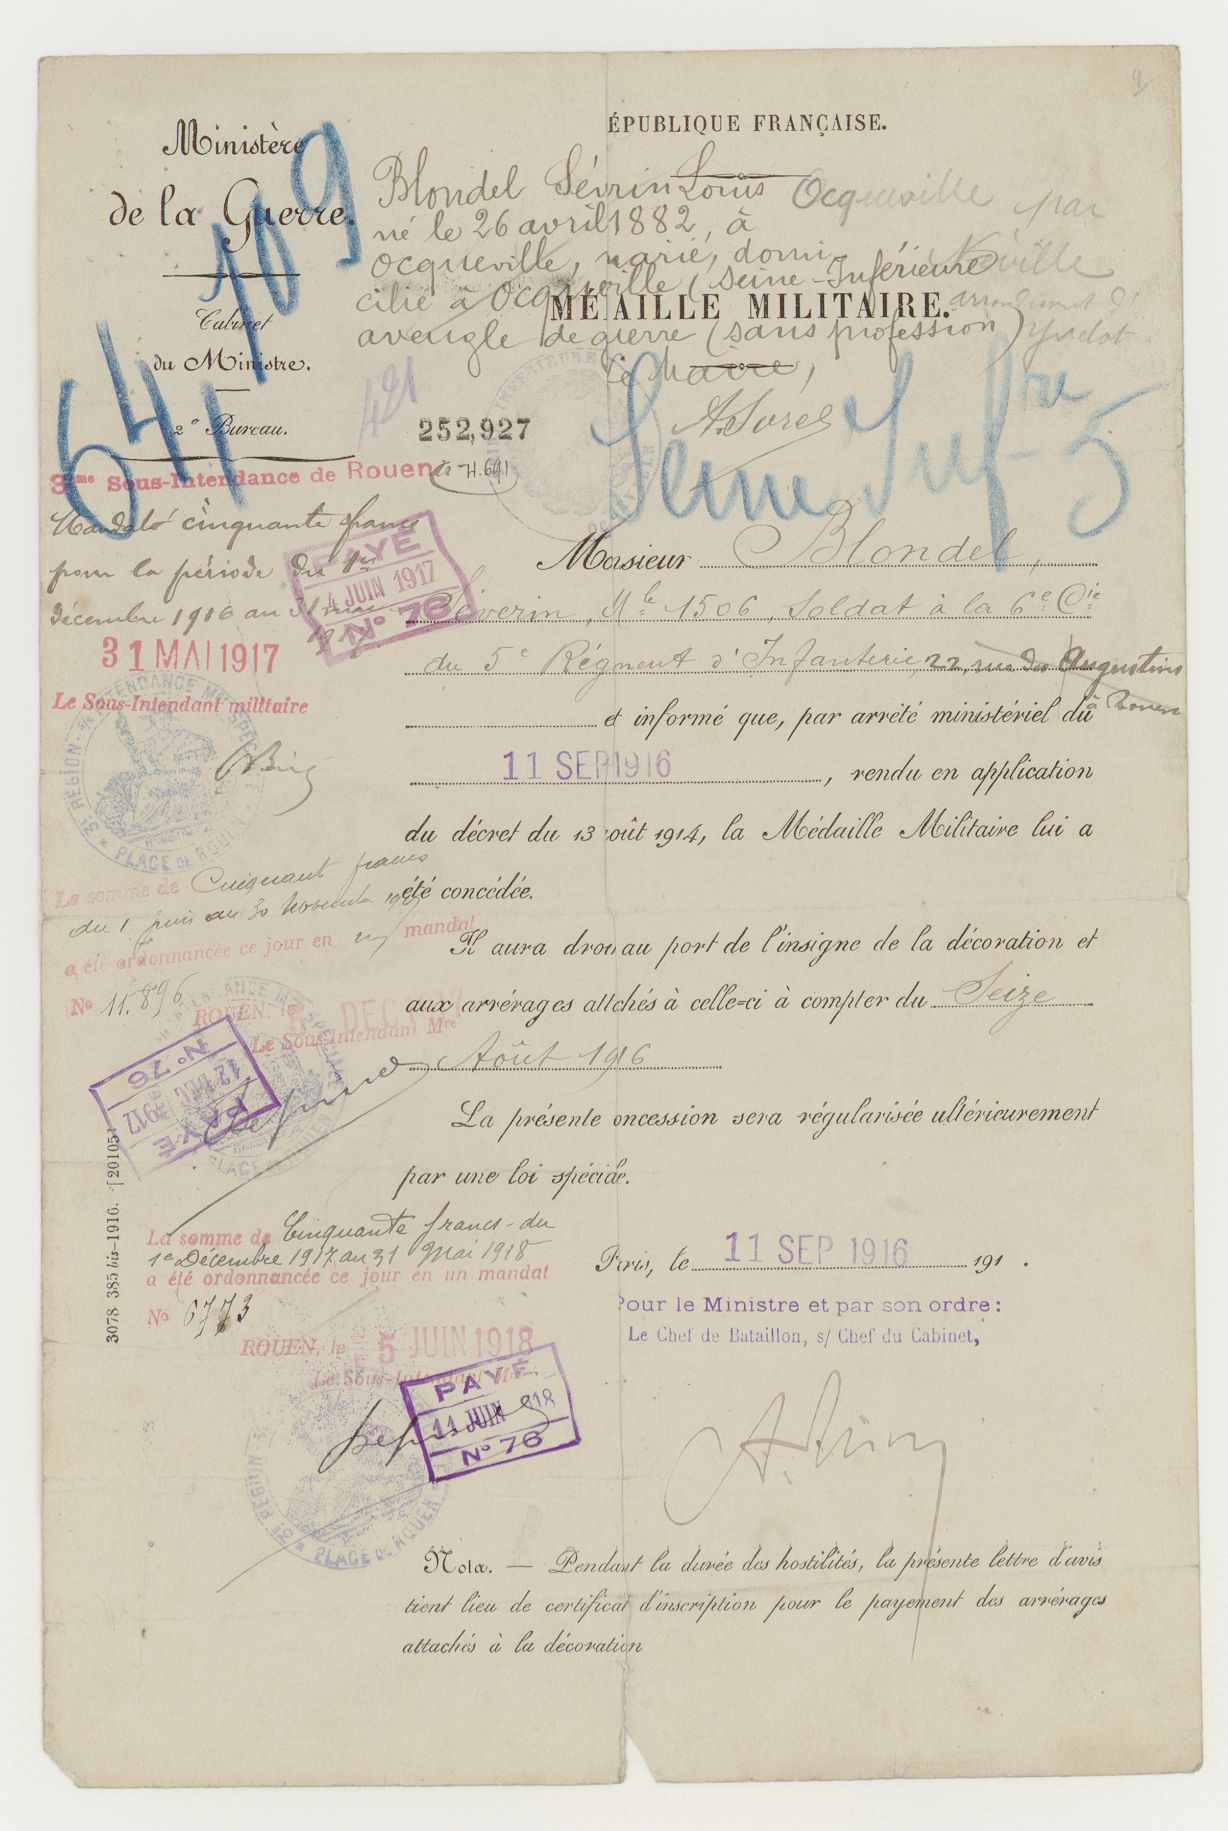 9
ÉPUBLIQUE FRANÇAISE.
Ministère
de la Guerre.
Cabinet
du Ministre.
2e Bureau.
64,109
421
Blondel Sévrin Louis
né le 26 avril 1882, à
Ocqueville, marié, domi-
cilié à Ocqueville (Seine-Inférieure
aveugle de guerre (sans profession)
Le Maire,
A. Sorel
Ocqueville par
Néville
arrondissement d'
Yvetot
MÉ AILLE MILITAIRE.
252,927
H.691
Seine Infre 5
3me Sous-Intendance de Rouen
Mandaté cinquante francs
pour la période du 1er
décembre 1916 au 31 mai
1917
PAYÉ
4 JUIN 1917
No 76
31 MAI 1917
Le Sous-Intendant militaire
3e RÉGION
PLACE DE ROUEN
Monsieur Blondel,
Séverin, Mle 1506, Soldat à la 6e Cie
du 5e Régiment d'Infanterie, 22, rue des Augustins
à Rouen
et informé que, par arrêté ministériel du
11 SEP 1916, rendu en application
du décret du 13 oût 1914, la Médaille Militaire lui a
été concédée.
Il aura droi au port de l'insigne de la décoration et
aux arrérages attchés à celle-ci à compter du Seize
Août 1916
La présente oncession sera régularisée ultérieurement
par une loi spéciale.
La somme de Cinquante francs
du 1 juin au 30 Novembre 1917
a été ordonnancée ce jour en un mandat
No 11.896
ROUEN, le 5 DEC 1917
Le Sous-Intendant Mre
PAYÉ
12 DEC 1917
No 76
PLACE DE ROUEN
3078 385 bis-1916. [20105]
La somme de Cinquante francs - du
1er Décembre 1917 au 31 Mai 1918
a été ordonnancée ce jour en un mandat
No 6773
ROUEN, le 5 JUIN 1918
Le Sous-Intendant Mre
PAYÉ
11 JUIN 1918
No 76
3e RÉGION
PLACE DE ROUEN
Paris, le 11 SEP 1916 191 .
Pour le Ministre et par son ordre:
Le Chef de Bataillon, s/ Chef du Cabinet,
Nota. — Pendant la durée des hostilités, la présente lettre d'avis
tient lieu de certificat d'inscription pour le payement des arrérages
attachés à la décoration